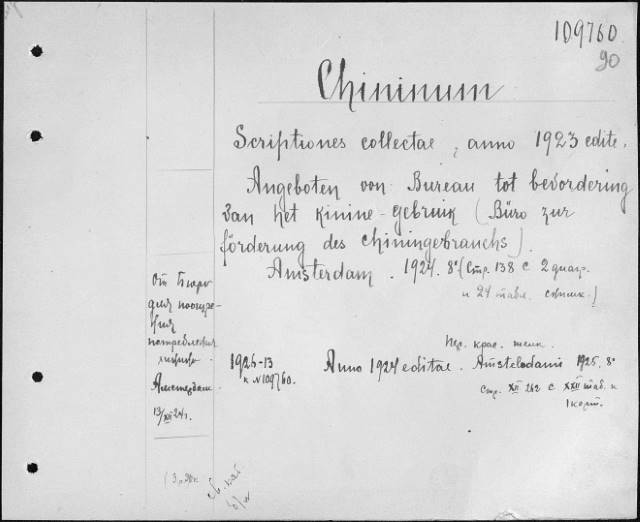 109760
90
Chininum
Scriptiones collectae, anno 1923 edite.
Angeboten von Bureau tot bevordering
van het kinine-gebruik (Büro zur
förderung des chiningebrauchs).
Amsterdam. 1924. 8° (Стр. 138 с 2 диагр.
и 24 табл. снимк.)
От Бюро
для поощре-
ния
потребления
хинина
Амстердам.
13/XII 24 г.
Пер. крас. тисн.
1926-13
к N109760.
Anno 1924 editae. Amstelodami 1925. 8°
Стр. XII 262 с XXII таб. и
1 карт.